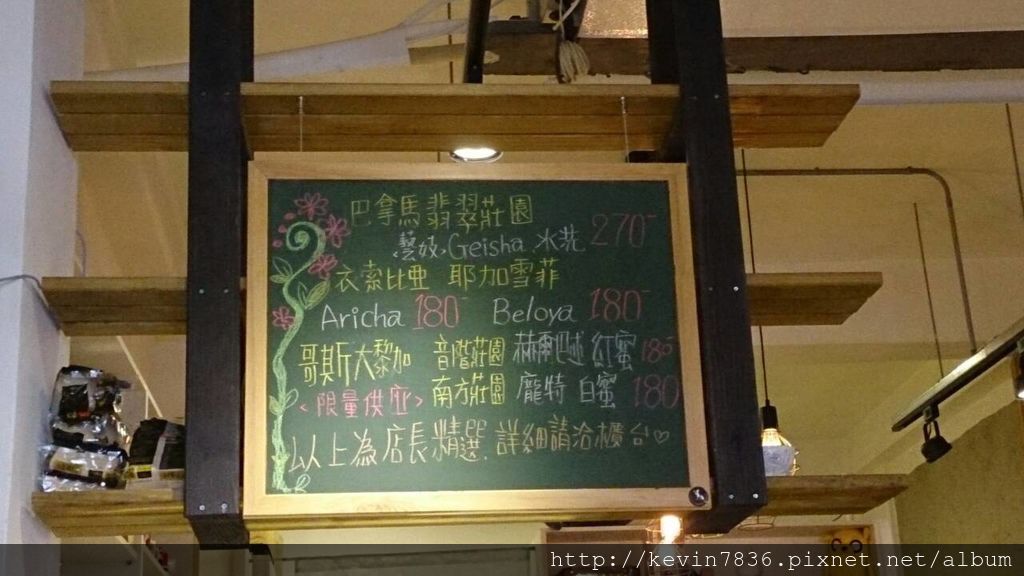 巴拿馬翡翠莊園
藝妓,Geisha 水洗 270-
衣索比亞 耶加雪菲
Aricha 180- Beloya 180-
哥斯大黎加 音階莊園 赫爾巴夏 紅蜜 180
<限量供应> 南方莊園 龐特 白蜜 180
以上為店長精選.詳細請洽櫃台♡
http://kevin7836.pixnet.net/album